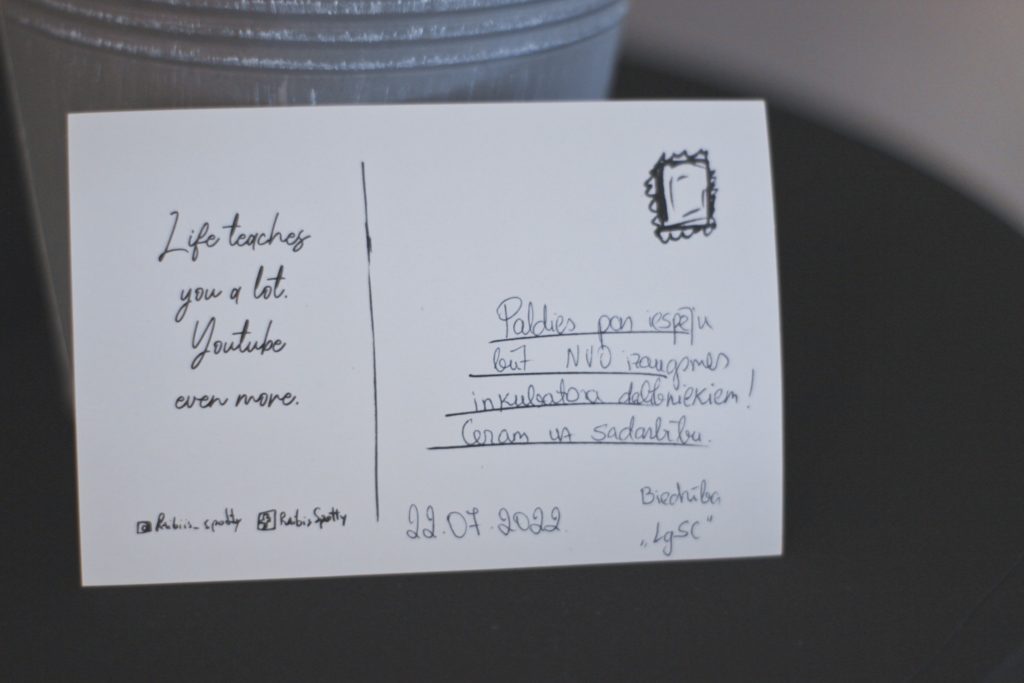 Life teaches
you a lot.
Youtube
even more.
Paldies par iespēju
būt NVO izaugsmes
inkubatora dalībniekiem!
Ceram uz sadarbību.
22.07.2022.
Biedrība
„LgSC"